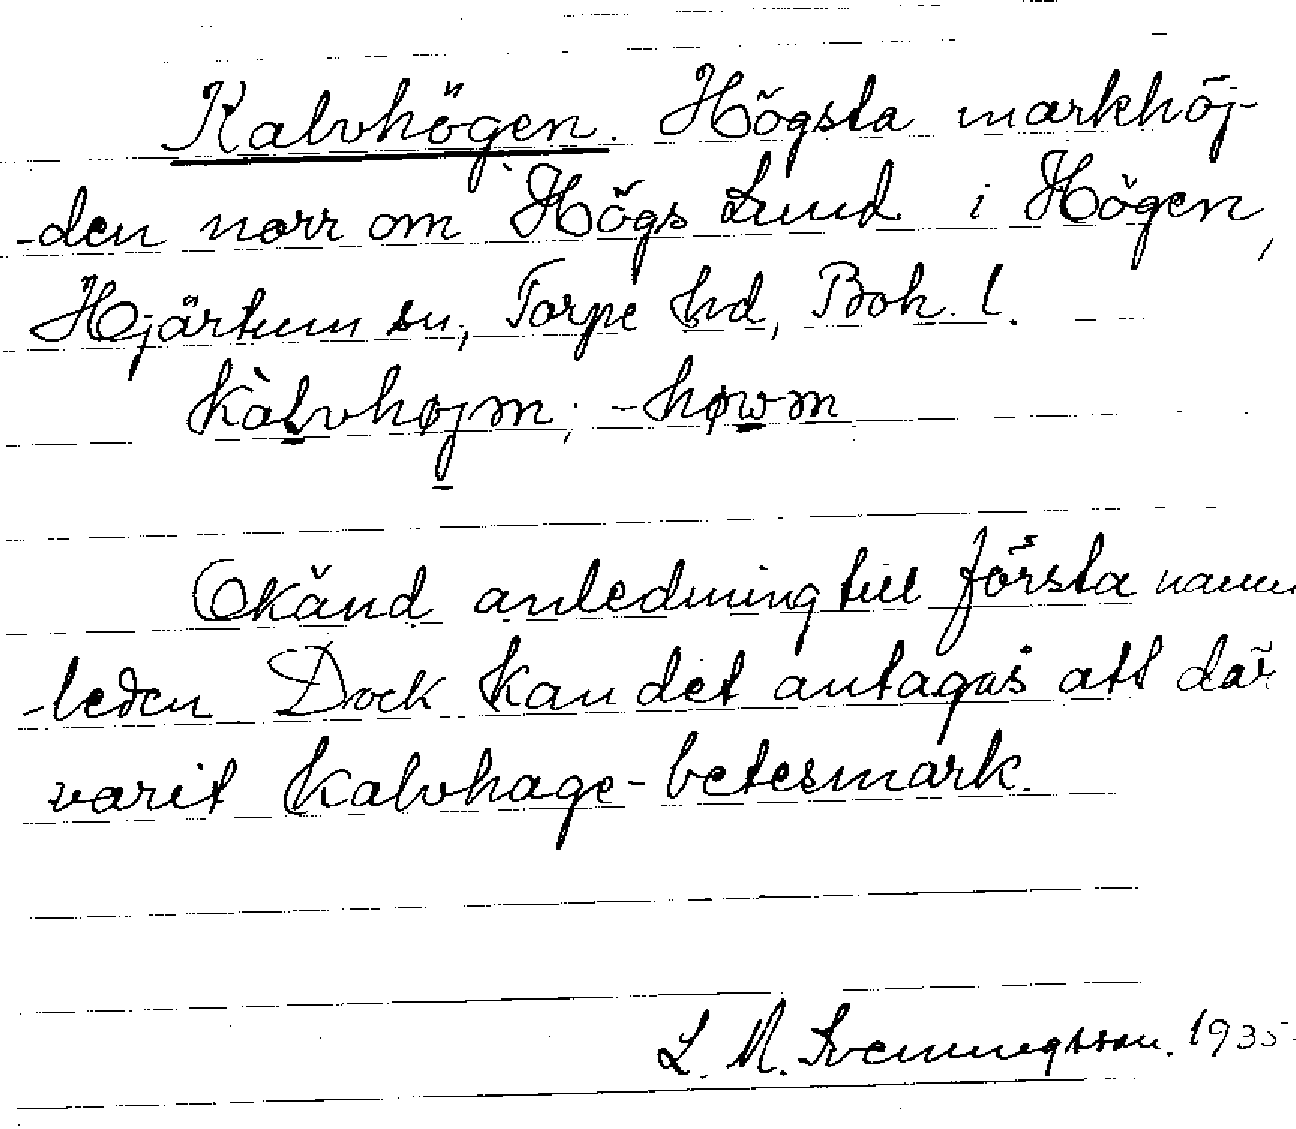 Kalvhögen. Högsta markhöj-
-den norr om Högs Lund i Högen,
Hjärtum sn, Torpe hd, Boh. l.
kàlvhøjm; -høwm
Okänd anledning till första namn
-leden Dock kan det antagas att där
varit kalvhage-betesmark.
L. M. Svenningsson. 1935